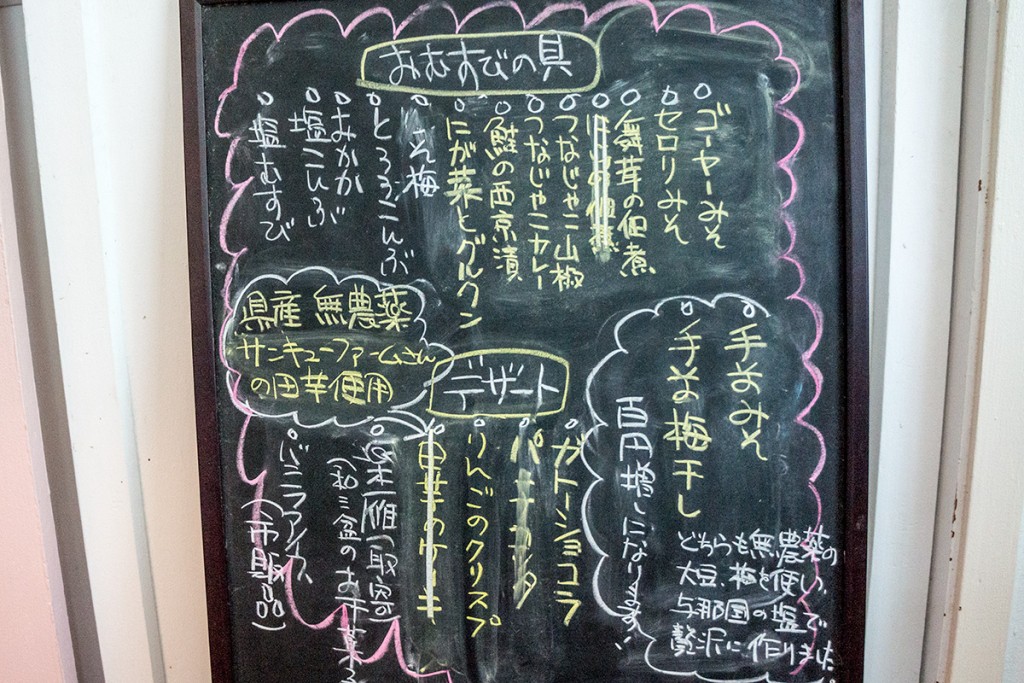 おむすびの具
ゴーヤーみそ
セロリみそ
舞茸の佃煮
つなじゃこ山椒
つなじゃこカレー
鮭の西京漬
にが菜とグルクン
しそ梅
とろろこんぶ
おかか
塩こんぶ
塩むすび
手前みそ
手前梅干し
百円増しになります!
どちらも無農薬の
大豆、梅を使い、
与那国の塩で
贅沢に作りました。
県産 無農薬
サンキューファームさん
の田芋使用
デザート
ガトーショコラ
パンナコッタ
りんごのクリスプ
田芋のケーキ
落雁(取寄)
(和三盆のお干菓子
バニラアイス
(市販品)